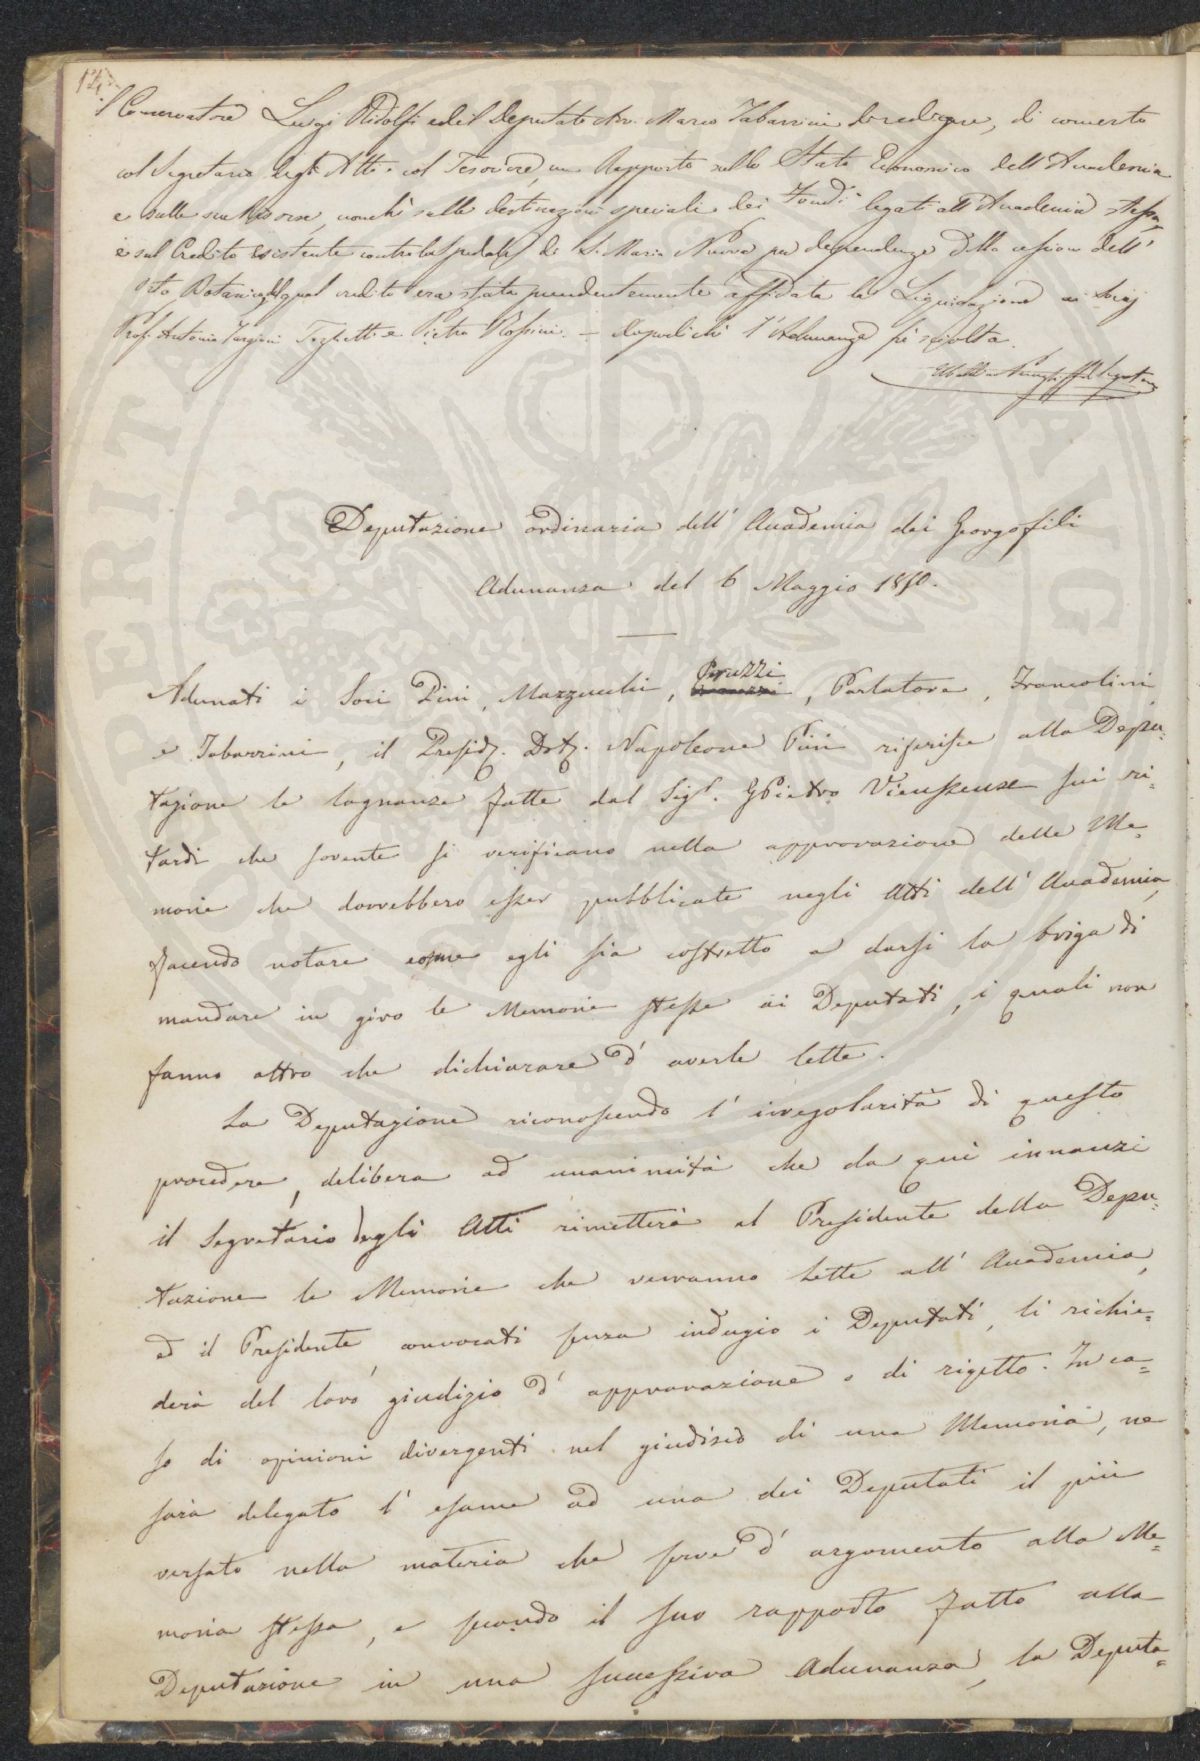 14
Il Conservatore Luigi Ridolfi ed il Deputato Avv. Marco Tabarrini di redigere, di concerto
col Segretario degli Atti e col Tesoriere, un Rapporto sullo Stato Economico dell'Accademia
e sulle sue Risorse, nonchè sulle destinazioni speciali dei Fondi legati all'Accademia stessa,
e sul Credito esistente contro lo Spedale di S. Maria Nuova per dependenze della cessione dell'
Orto Botanico, del qual credito era stata precedentemente affidata la Liquidazione ai Socij
Prof. Antonio Targioni Tozzetti e Pietro Rossini. — dopodichè l'Adunanza fù sciolta.
Deputazione ordinaria dell' Accademia dei Georgofili
Adunanza del 6 Maggio 1850.
Adunati i Soci Pini, Mazzucchi, Peruzzi, Parlatore, Francolini
e Tabarrini, il Presid. Dott. Napoleone Pini riferisce alla Depu=
tazione le lagnanze fatte dal Sig. GPietro Vieusseux sui ri=
tardi che sovente si verificano nella approvazione delle Me=
morie che dovrebbero esser pubblicate negli Atti dell' Accademia,
facendo notare come egli sia costretto a darsi la briga di
mandare in giro le Memorie stesse ai Deputati, i quali non
fanno altro che dichiarare d' averle lette.
La Deputazione riconoscendo l' irregolarità di questo
procedere, delibera ad unanimità che da qui innanzi
il Segretario degli Atti rimetterà al Presidente della Depu=
tazione le Memorie che verranno lette all' Accademia,
ed il Presidente, convocati senza indugio i Deputati, li richie=
derà del loro giudizio d' approvazione o di rigetto. In ca=
so di opinioni divergenti nel giudizio di una Memoria, ne
sarà delegato l' esame ad uno dei Deputati il più
versato nella materia che serve d' argomento alla Me=
moria stessa, e secondo il suo rapporto fatto alla
Deputazione in una successiva Adunanza, la Deputa=